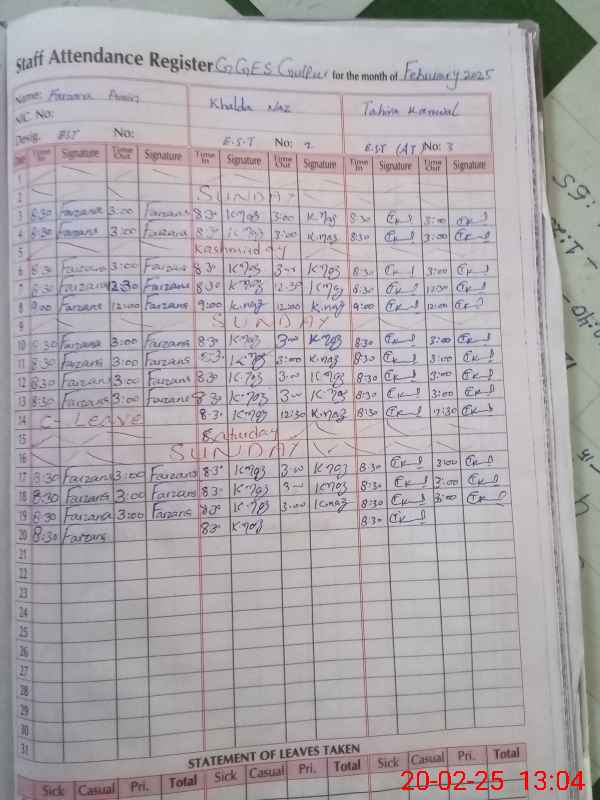 Staff Attendance Register GGES for the month of February 2025
Name: Farzana Khalda Naz Tahira Kanwal
NIC No:
Desig. EST No: E.S.T No: 2 E.S.T (AT) No: 3
Date Time In Signature Time Out Signature Time In Signature Time Out Signature Time In Signature Time Out Signature
1
2 SUNDAY
3 8:30 Farzana 3:00 Farzana 8:30 K.Naz 3:00 K.Naz 8:30 3:00
4 8:30 Farzana 3:00 Farzana 8:30 K.Naz 3:00 K.Naz 8:30 3:00
5 Kashmir day
6 8:30 Farzana 3:00 Farzana 8:30 K.Naz 3:00 K.Naz 8:30 3:00
7 8:30 Farzana 12:30 Farzana 8:30 K.Naz 12:30 K.Naz 8:30 12:30
8 9:00 Farzana 12:00 Farzana 9:00 K.Naz 12:00 K.Naz 9:00 12:00
9 SUNDAY
10 8:30 Farzana 3:00 Farzana 8:30 K.Naz 3:00 K.Naz 8:30 3:00
11 8:30 Farzana 3:00 Farzana 8:30 K.Naz 3:00 K.Naz 8:30 3:00
12 8:30 Farzana 3:00 Farzana 8:30 K.Naz 3:00 K.Naz 8:30 3:00
13 8:30 Farzana 3:00 Farzana 8:30 K.Naz 3:00 K.Naz 8:30 3:00
14 C- LEAVE 8:30 K.Naz 12:30 K.Naz 8:30 12:30
15 Saturday
16 SUNDAY
17 8:30 Farzana 3:00 Farzana 8:30 K.Naz 3:00 K.Naz 8:30 3:00
18 8:30 Farzana 3:00 Farzana 8:30 K.Naz 3:00 K.Naz 8:30 3:00
19 8:30 Farzana 3:00 Farzana 8:30 K.Naz 3:00 K.Naz 8:30 3:00
20 8:30 Farzana 8:30 K.Naz 8:30
21
22
23
24
25
26
27
28
29
30
31
STATEMENT OF LEAVES TAKEN
Sick Casual Pri. Total Sick Casual Pri. Total Sick Casual Pri. Total
20-02-25 13:04